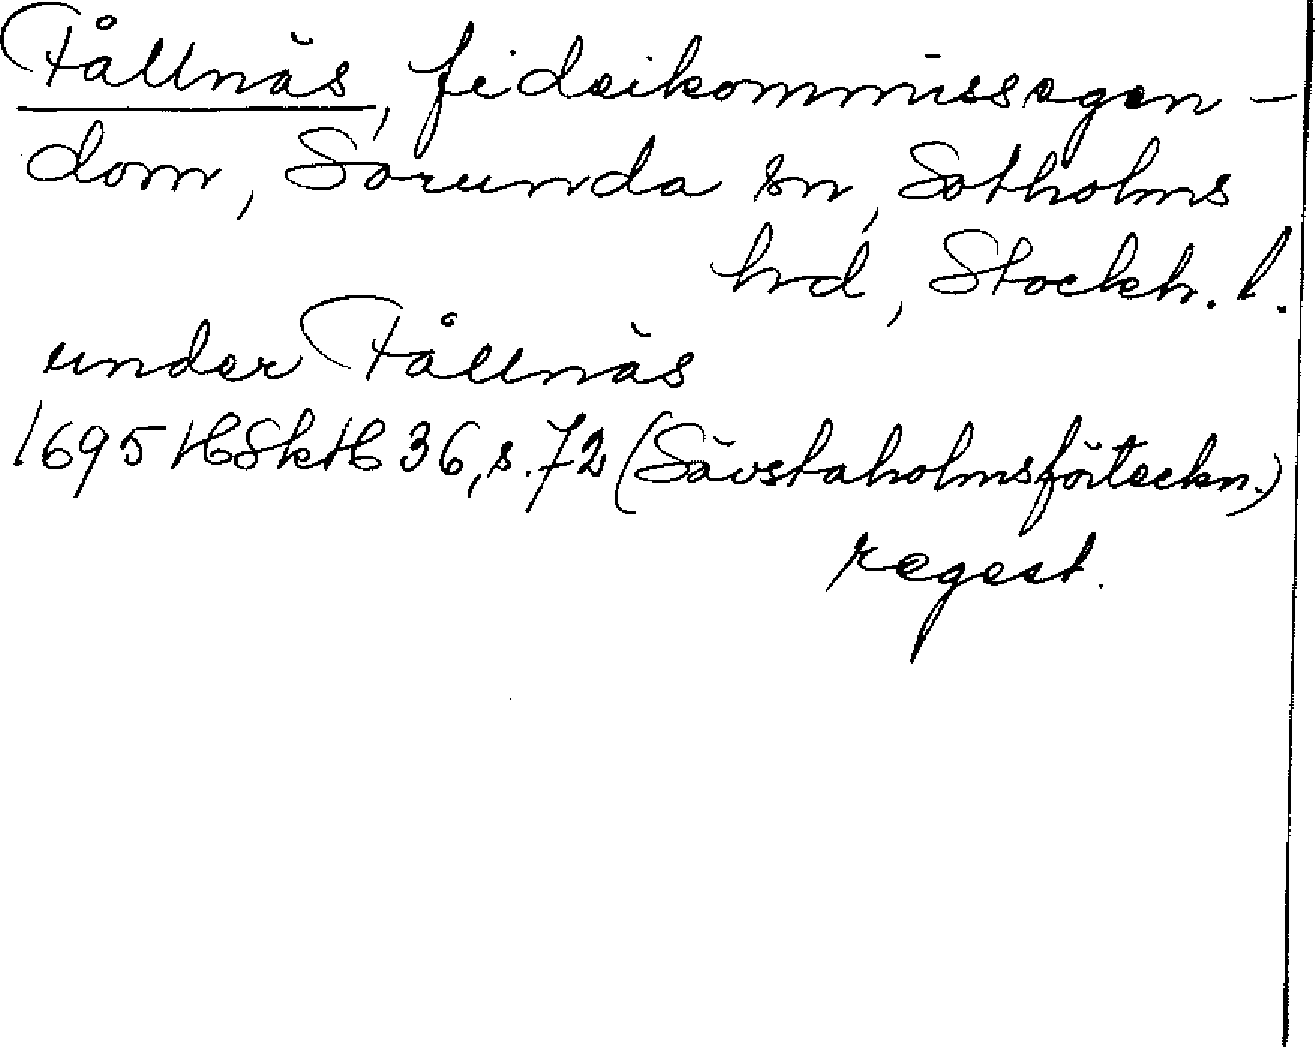 Fållnäs, fideikommissegen-
dom, Sorunda sn, Sotholms
hd, Stockh. l.
under Fållnäs
1695 HSkH 36, s. 72 (Sävstaholmsförteckn.)
regest.